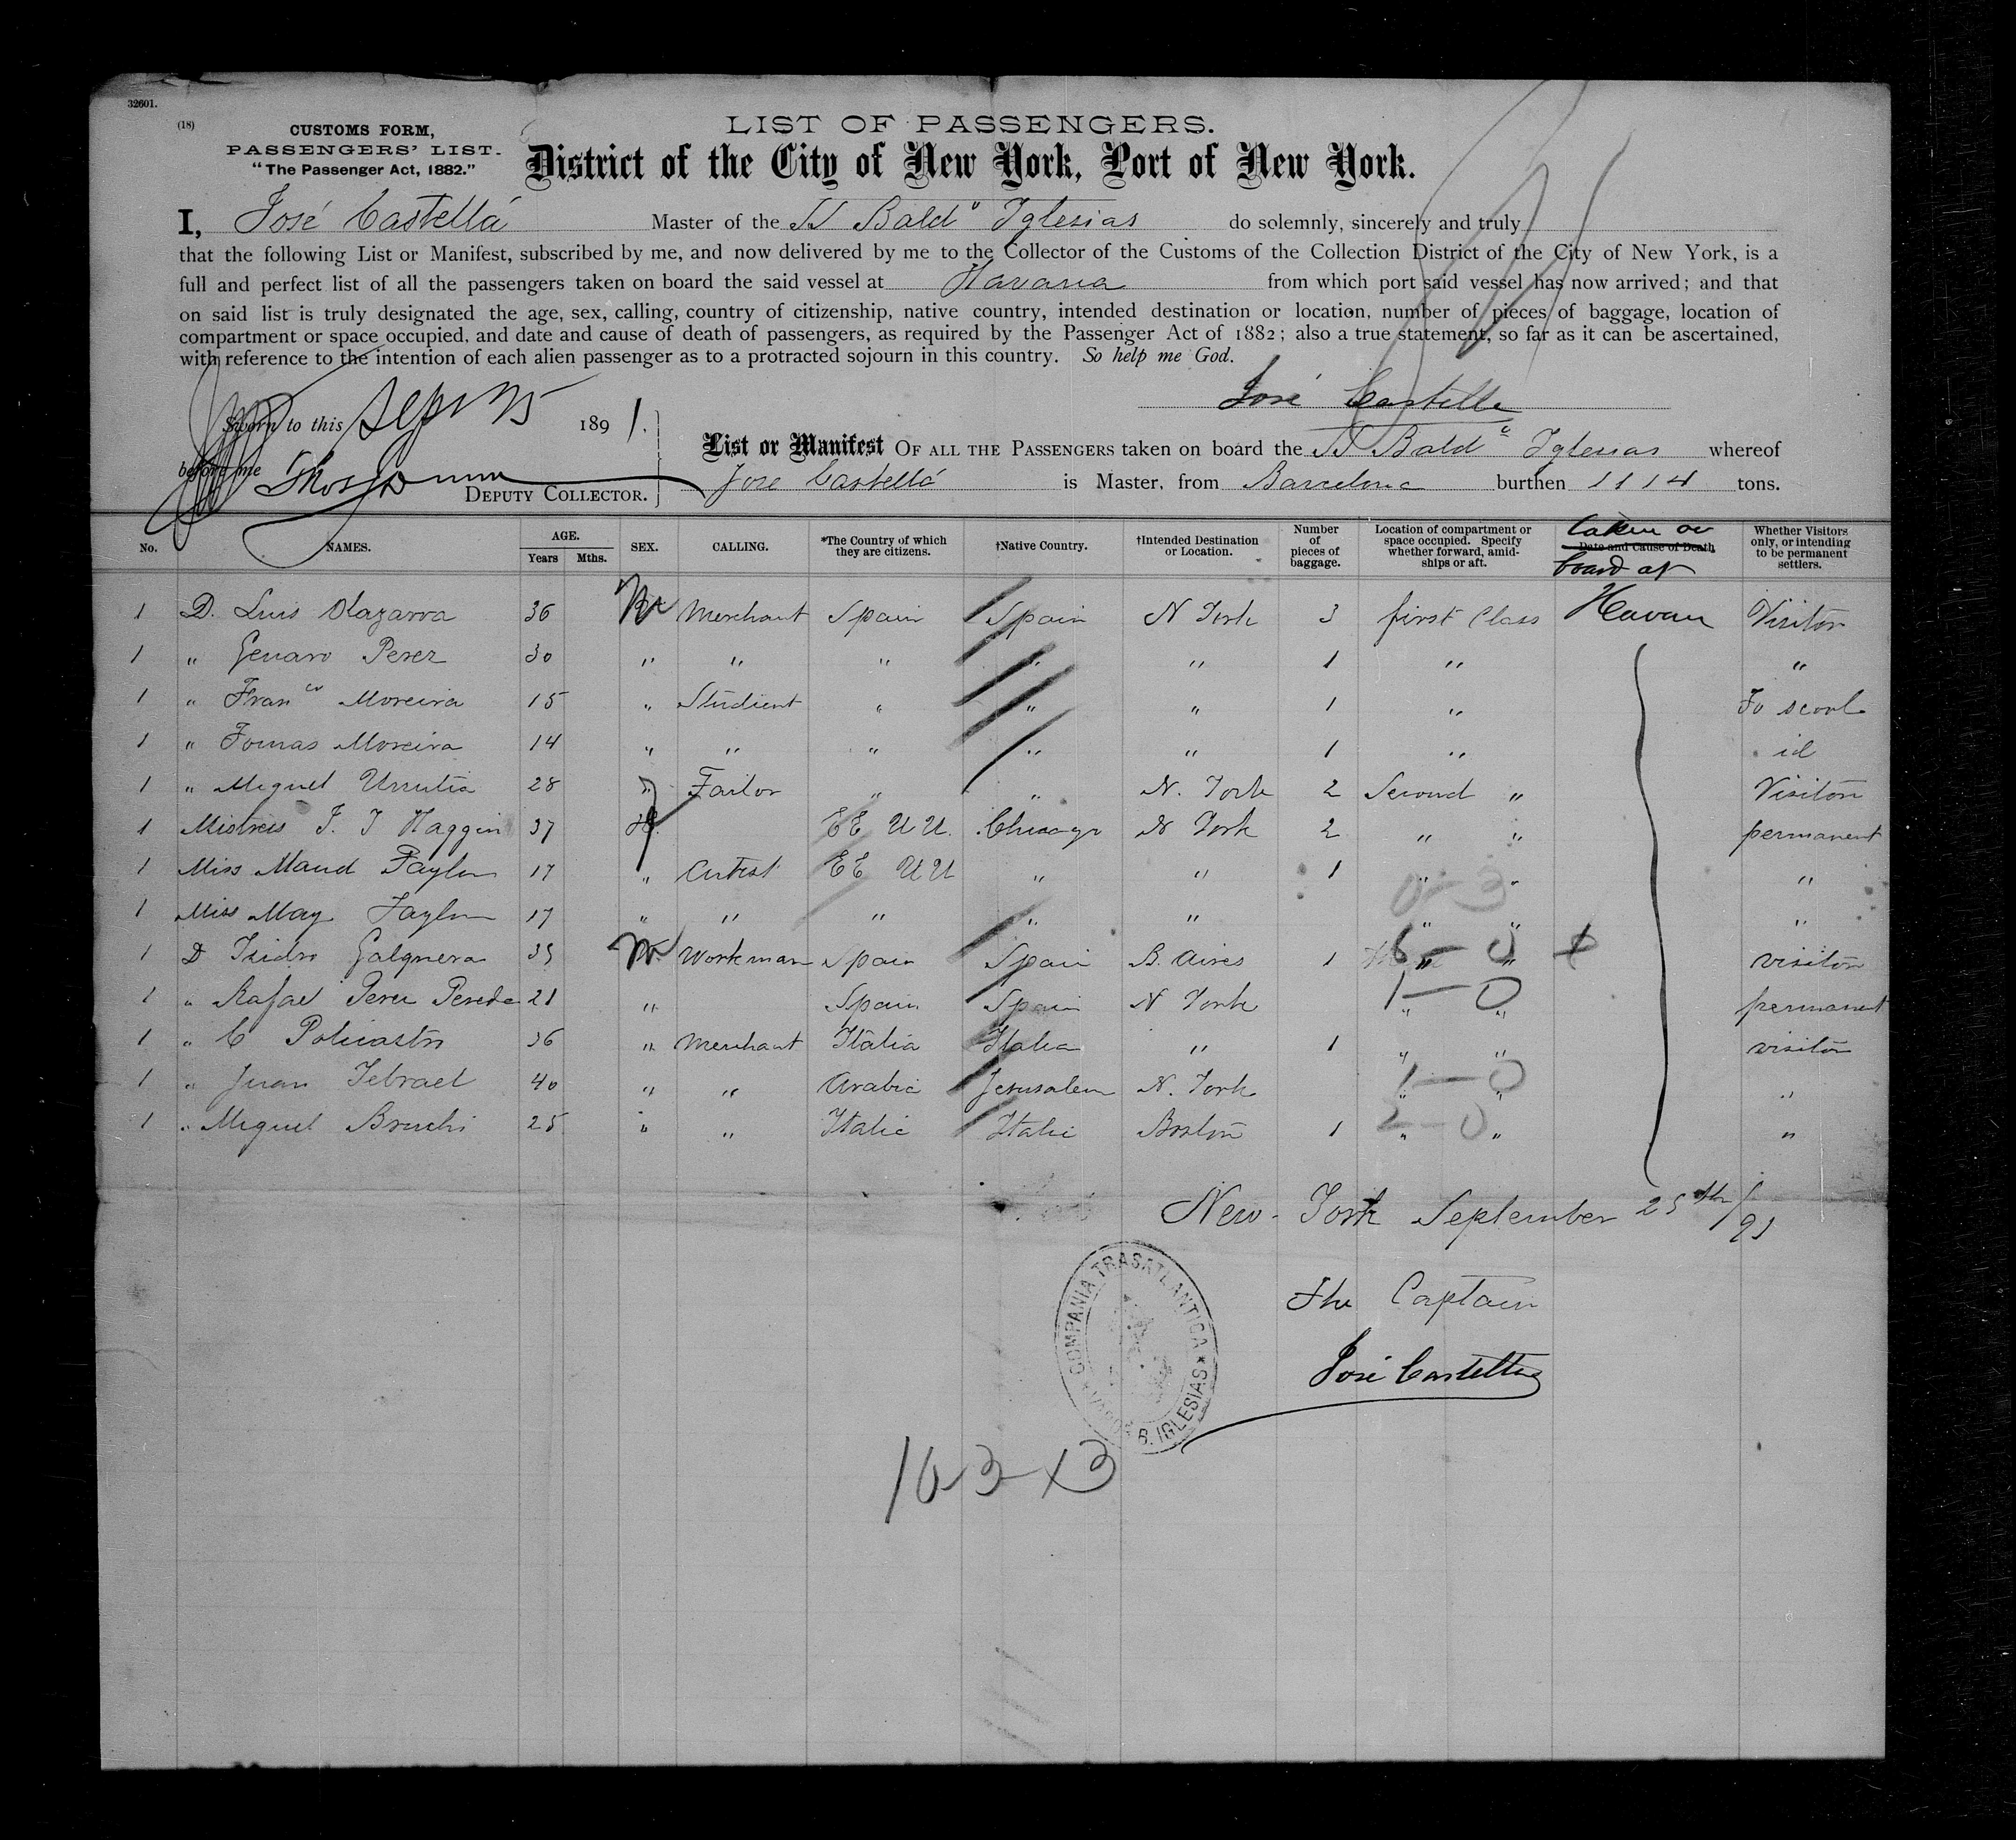 32601.
(18)
CUSTOMS FORM,
PASSENGERS' LIST.
"The Passenger Act, 1882."
LIST OF PASSENGERS.
District of the City of New York, Port of New York.
I, José Castellá Master of the SS Baldº Iglesias do solemnly, sincerely and truly
that the following List or Manifest, subscribed by me, and now delivered by me to the Collector of the Customs of the Collection District of the City of New York, is a
full and perfect list of all the passengers taken on board the said vessel at Havana from which port said vessel has now arrived; and that
on said list is truly designated the age, sex, calling, country of citizenship, native country, intended destination or location, number of pieces of baggage, location of
compartment or space occupied, and date and cause of death of passengers, as required by the Passenger Act of 1882; also a true statement, so far as it can be ascertained,
with reference to the intention of each alien passenger as to a protracted sojourn in this country. So help me God.
José Castella
Sworn to this Sept 25 1891.
before me
DEPUTY COLLECTOR.
List or Manifest OF ALL THE PASSENGERS taken on board the SS Baldº Iglesias whereof
José Castellá is Master, from Barcelona burthen 1114 tons.
No. NAMES. AGE. Years Mths. SEX. CALLING. *The Country of which they are citizens. †Native Country. †Intended Destination or Location. Number of pieces of baggage. Location of compartment or space occupied. Specify whether forward, amidships or aft. Date and Cause of Death taken on board at Whether Visitors only, or intending to be permanent settlers.
1 D. Luis Olazarra 36 M Merchant Spain Spain N York 3 first Class Havan Visitor
1 " Genaro Perez 30 " " " " " 1 " "
1 " Franco Moreira 15 " Studient " " " 1 " To scool
1 " Tomas Moreira 14 " " " " " 1 " id
1 " Miguel Urrutia 28 " Tailor " " N. York 2 Second " Visiton
1 Mistress F. J Haggin 37 EE UU. Chicago N York 2 " " permanent
1 Miss Maud Taylor 17 " Artist EE UU " " 1 " " "
1 Miss May Taylor 17 " " " " " " " "
1 D Isidro Galguera 35 M Workman Spain Spain B. Aires 1 " " visiton
1 " Rafael Perez Pereda 21 " Spain Spain N York " " permanent
1 " C Policastro 36 " Merchant Italia Italia " 1 " " visiton
1 " Juan Jebrael 40 " " Arabia Jerusalem N. York " " "
1 " Miguel Bruchi 25 " " Italia Itali Boston 1 " " "
0-3
6-0
1-0
1-0
2-0
New-York September 25th/91
The Captain
José Castellá
COMPAÑIA TRASATLANTICA
VAPOR B. IGLESIAS
10 3 x 3